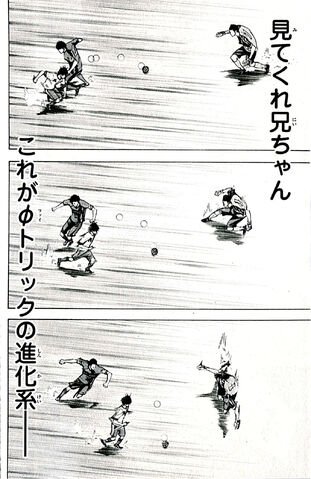 見てくれ兄ちゃん
これがφトリックの進化系──